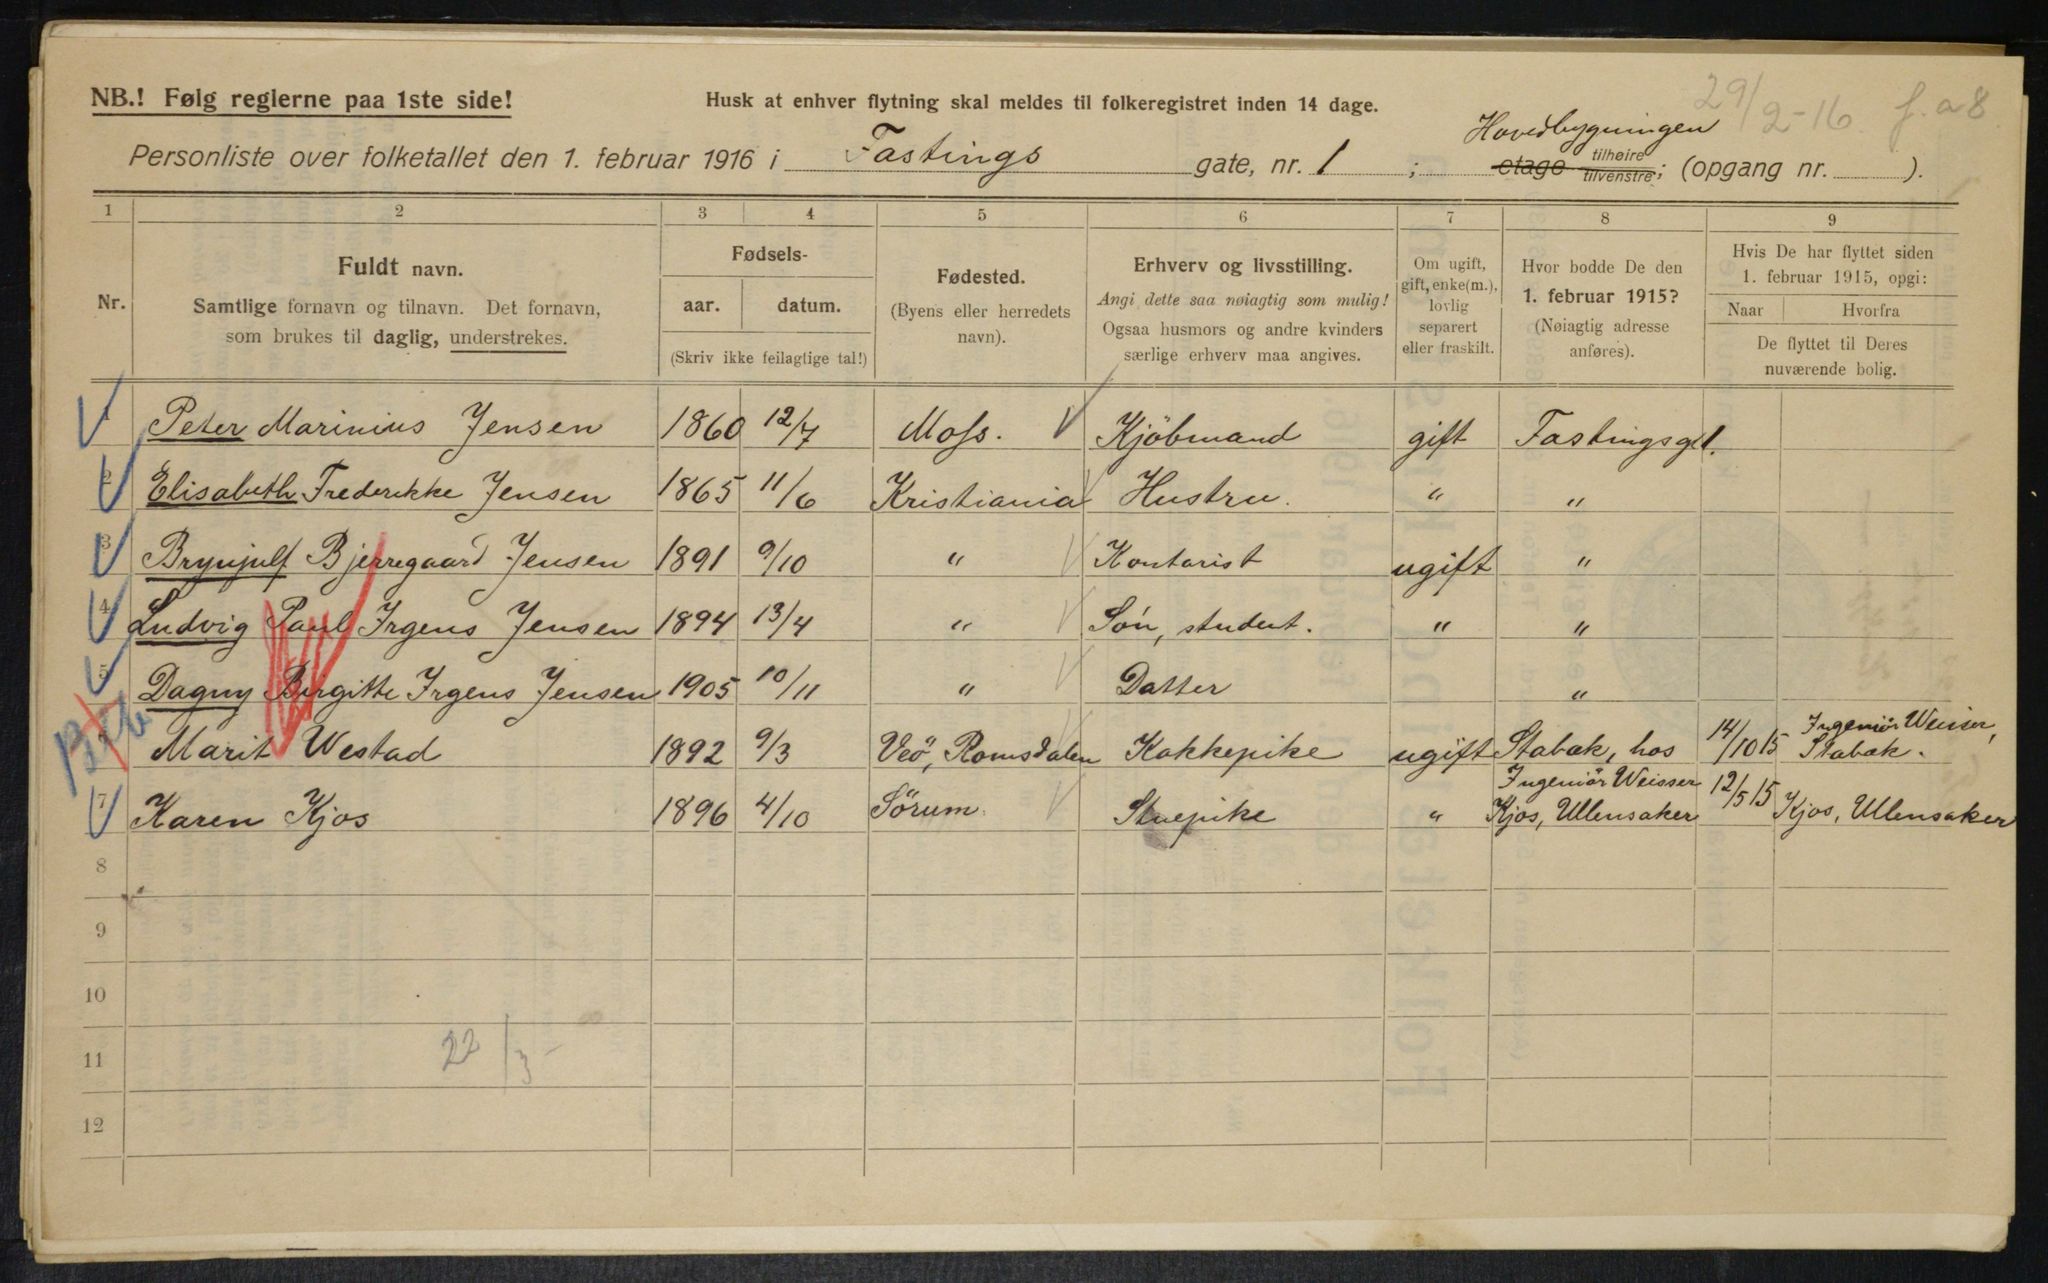 29/2-16 f. a 8
NB.! Følg reglerne paa 1ste side!
Husk at enhver flytning skal meldes til folkeregistret inden 14 dage.
Hovedbygningen
Personliste over folketallet den 1. februar 1916 i Fastings gate, nr. 1 ; etage tilhøire tilvenstre; (opgang nr. ).
1 2 3 4 5 6 7 8 9
Nr.
Fuldt navn.
Samtlige fornavn og tilnavn. Det fornavn,
som brukes til daglig, understrekes.
Fødsels-
aar. datum.
(Skriv ikke feilagtige tal!)
Fødested.
(Byens eller herredets
navn).
Erhverv og livsstilling.
Angi dette saa nøiagtig som mulig!
Ogsaa husmors og andre kvinders
særlige erhverv maa angives.
Om ugift,
gift, enke(m.),
lovlig
separert
eller fraskilt.
Hvor bodde De den
1. februar 1915?
(Nøiagtig adresse
anføres).
Hvis De har flyttet siden
1. februar 1915, opgi:
Naar Hvorfra
De flyttet til Deres
nuværende bolig.
1 Peter Marinius Jensen 1860 12/7 Moss. Kjöbmand gift Fastingsg 1.
2 Elisabeth Frederikke Jensen 1865 11/6 Kristiania Hustru. " "
3 Brynjulf Bjerregaard Jensen 1891 9/10 " Kontorist ugift "
4 Ludvig Paul Irgens Jensen 1894 13/4 " Sön, student. " "
5 Dagny Birgitte Irgens Jensen 1905 10/11 " Datter "
Marit Westad 1892 9/3 Veö, Romsdalen Kokkepike ugift Stabæk, hos Ingeniör Weisser 14/10 15 Ingeniör Weisser, Stabæk.
7 Karen Kjos 1896 4/10 Sörum Stuepike " Kjos, Ullensaker 12/5 15 Kjos, Ullensaker
8
9
10
11 22/3-
12